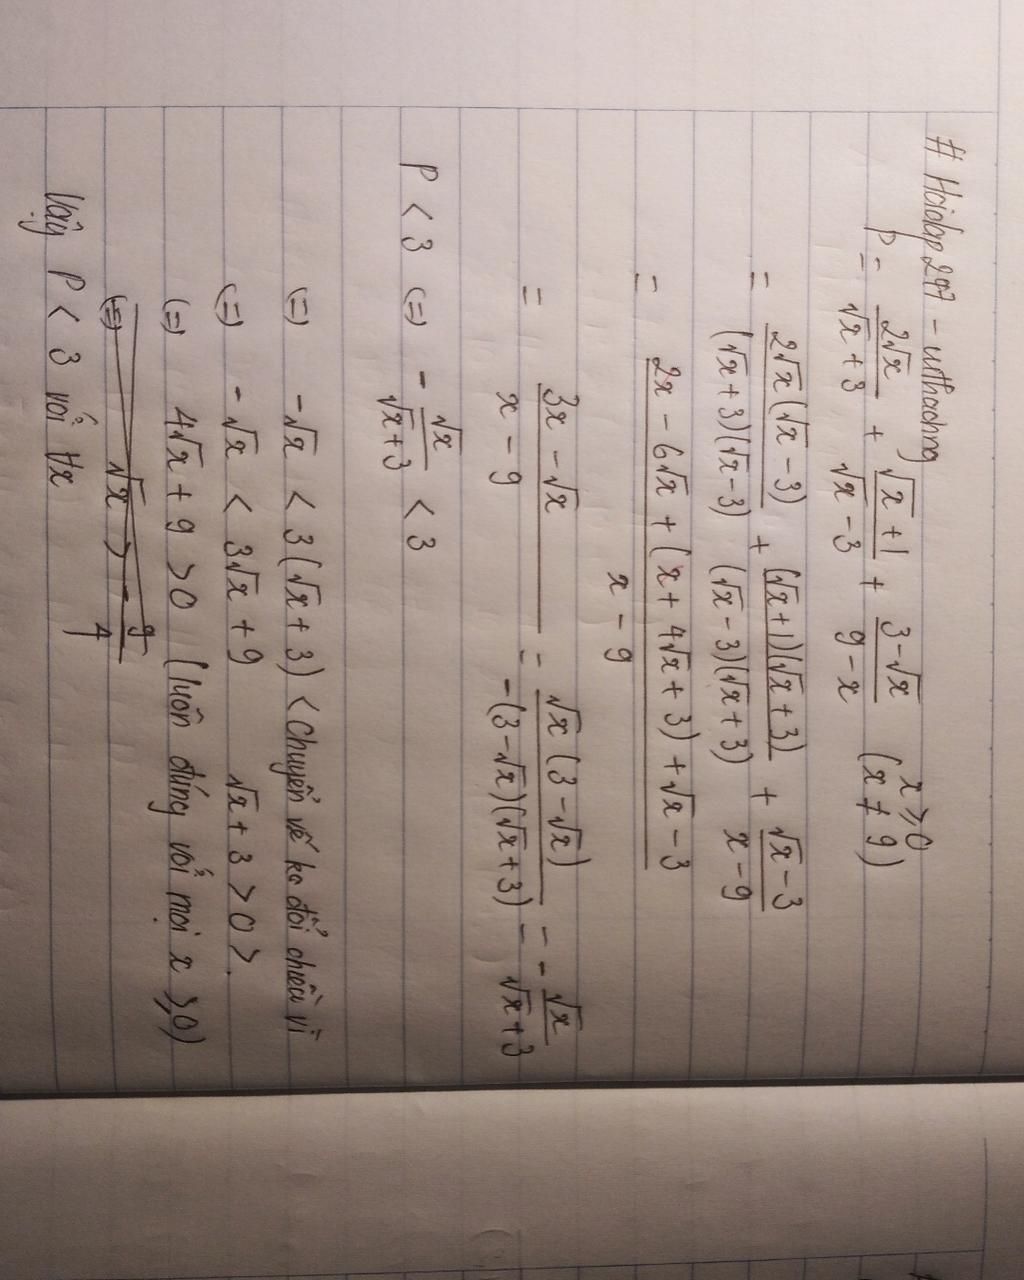 # Hoidap247 - withachng
P = 2√x / √x + 3 + √x + 1 / √x - 3 + 3 - √x / 9 - x (x ⩾ 0 x ≠ 9)
= 2√x(√x - 3) / (√x + 3)(√x - 3) + (√x + 1)(√x + 3) / (√x - 3)(√x + 3) + √x - 3 / x - 9
= 2x - 6√x + (x + 4√x + 3) + √x - 3 / x - 9
= 3x - √x / x - 9 = √x(3 - √x) / -(3 - √x)(√x + 3) = - √x / √x + 3
P < 3 (=) - √x / √x + 3 < 3
(=) -√x < 3(√x + 3) < Chuyển vế ko đổi chiều vì
(=) -√x < 3√x + 9 √x + 3 > 0 >.
(=) 4√x + 9 > 0 (luôn đúng với mọi x ⩾ 0)
(=) √x > - 9 / 4
Vậy P < 3 với ∀x